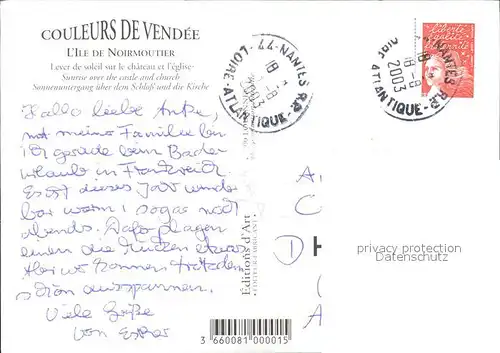 COULEURS DE VENDÉE
L'ILE DE NOIRMOUTIER
Lever de soleil sur le château et l'église
Sunrise over the castle and church
Sonnenuntergang über dem Schloß und die Kirche
Hallo liebe Anke,
mit meiner Familie bin
ich gerade beim Bade
urlaub in Frankreich
Es ist dieses Jahr wunder
bar warm, sogar noch
abends. Dafür plagen
einen die Mücken etwas
Aber wir können trotzdem
schön ausspannen.
Viele Grüße
von Esther
44-NANTES R.P.
LOIRE-ATLANTIQUE
18
-8
2003
liberté
égalité
fraternité
NANTES R.P.
ATLANTIQUE
18
-8
2003
Editions d'Art
A
C
D
H
A
privacy protection
Datenschutz
3 660081 000015